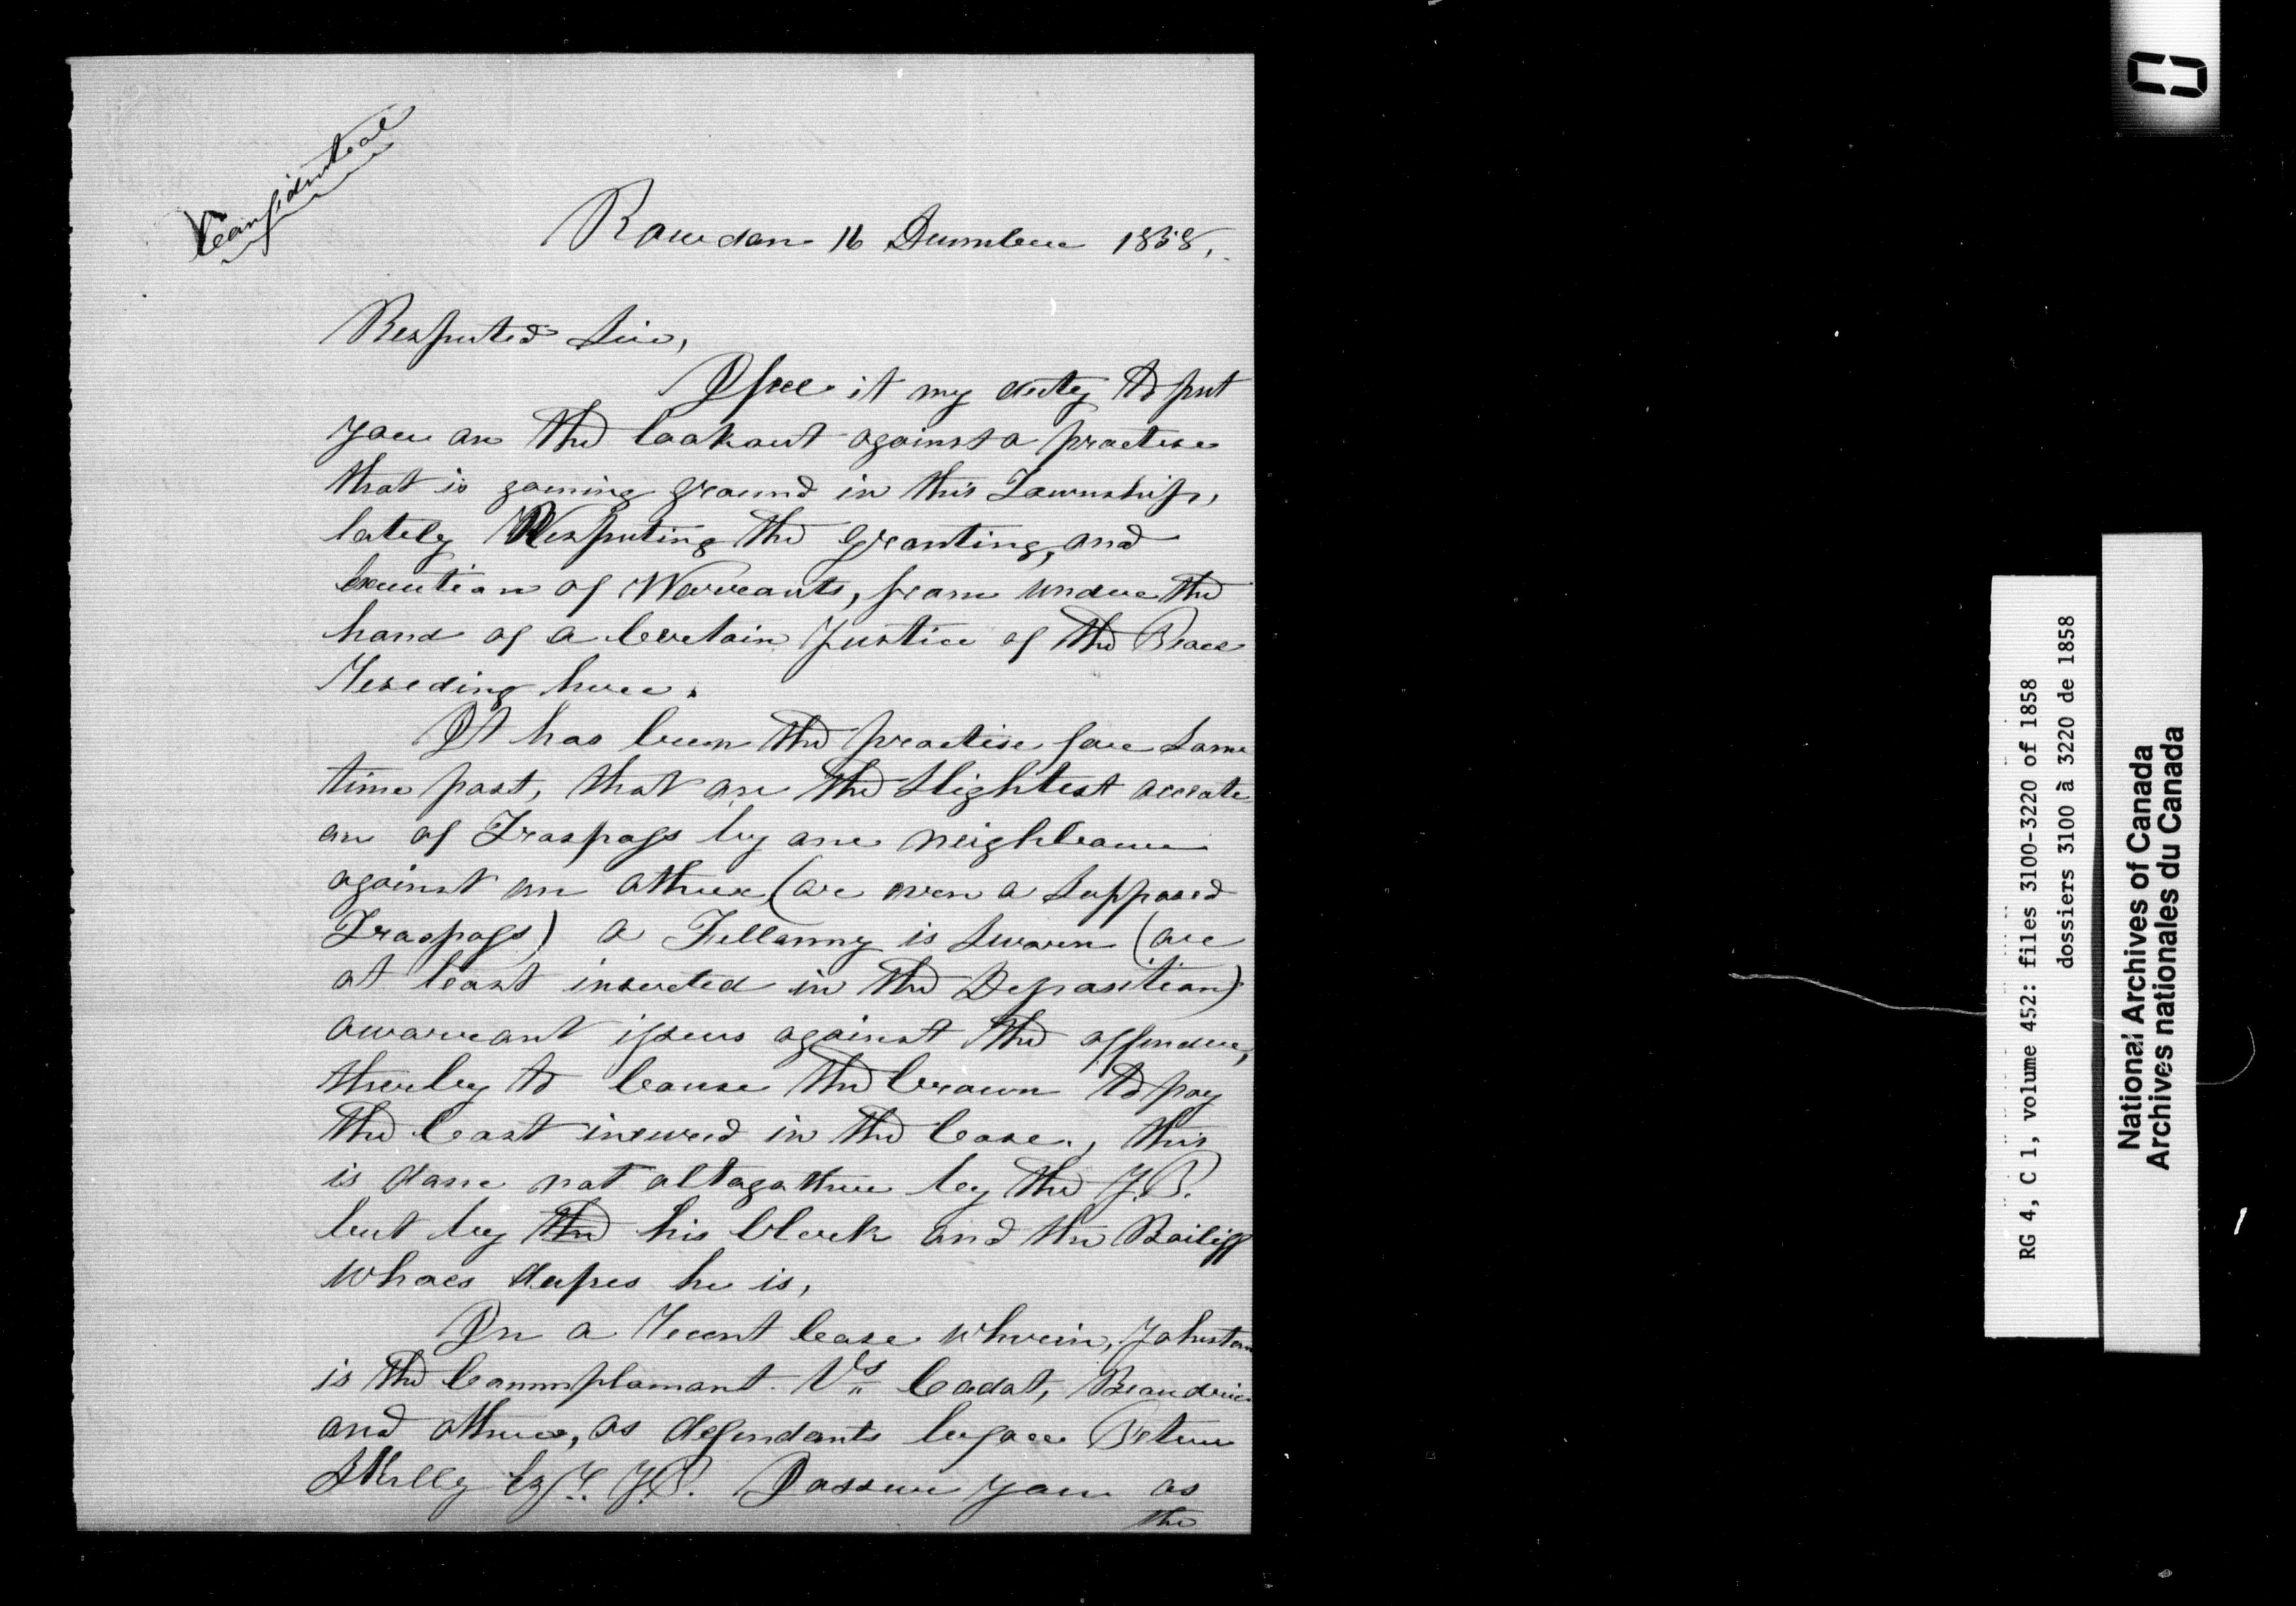 Confidential
Rawdon 16 December 1858.
Respected Sir,
I feel it my duty to put
you on the lookout against a practise
that is gaining ground in this Township,
lately Respecting the granting, and
execution of Warrants, from under the
hand of a Certain Justice of the Peace
Reseding here.
It has been the practise for Some
time past, that on the Slightest
an of Traspass by one neighbour
against an other (or even a Supposed
Traspass) a Fellonny is Sworn (or
at least inserted in the Deposition)
awarrant issues against the offender,
thereby to Cause the Crown to pay
the Cost incured in the Case., this
is done not altogather by the J.P.
but by the his Clerk and the Bailiff
whoes dupes he is,
In a Recent Case wherein, Johnston
is the Commplanant. Vs Cadot, Beaudrie
and others, as defendants before Peter
Skelly Esqr. J.P. I assure you as
the
RG 4, C 1, volume 452: files 3100-3220 of 1858
dossiers 3100 à 3220 de 1858
National Archives of Canada
Archives nationales du Canada